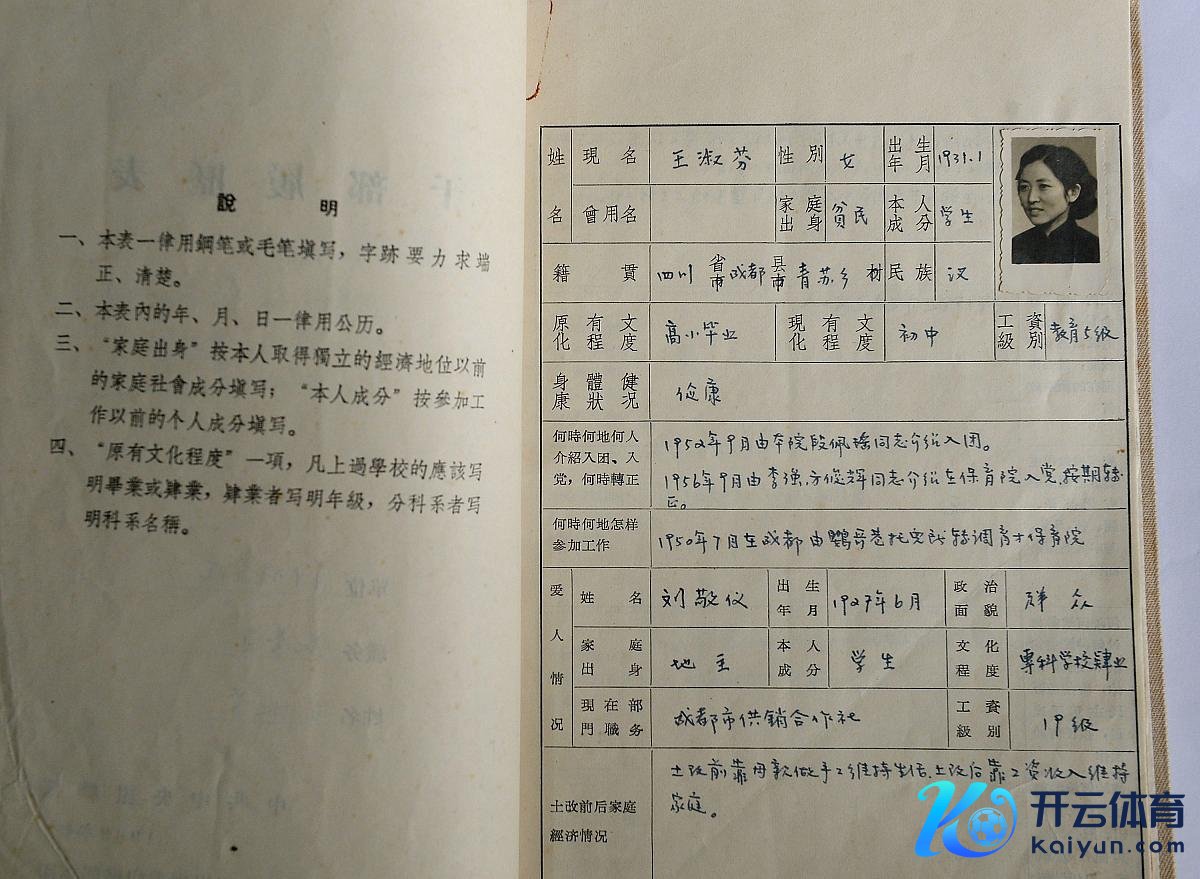 說 明
一、本表一律用鋼笔或毛笔填写，字跡要力求端
正、清楚。
二、本表內的年、月、日一律用公历。
三、“家庭出身”按本人取得獨立的經濟地位以前
的家庭社會成分填写；“本人成分”按參加工
作以前的个人成分填写。
四、“原有文化程度”一項，凡上過學校的應該写
明畢業或肄業，肄業者写明年級，分科系者写
明科系名稱。
姓名 現名 王淑芬 性別 女 出生年月 1931.1
曾用名 家庭出身 贫民 本人成分 学生
籍貫 四川 省市 成都 县市 青苏乡 村 民族 汉
原有文化程度 高小毕业 現有文化程度 初中 工資級別 教育5级
身體健康狀況 健康
何時何地何人介紹入团、入党，何時轉正
1952年9月由本院段佩瑶同志介绍入团。
1956年9月由李强、方俊辉同志介绍在保育院入党，按期转
正。
何時何地怎样参加工作 1950年7月在成都由鹦哥巷托儿所转调育才保育院
爱人情况 姓名 刘敬仪 出生年月 1927年6月 政治面貌 群众
家庭出身 地主 本人成分 学生 文化程度 專科学校肄业
現在部門職务 成都市供銷合作社 工資級別 19级
土改前后家庭經济情况
土改前靠母亲做手工维持生活，土改后靠工资收入维持
家庭。
开云体育
Kaiyun.com